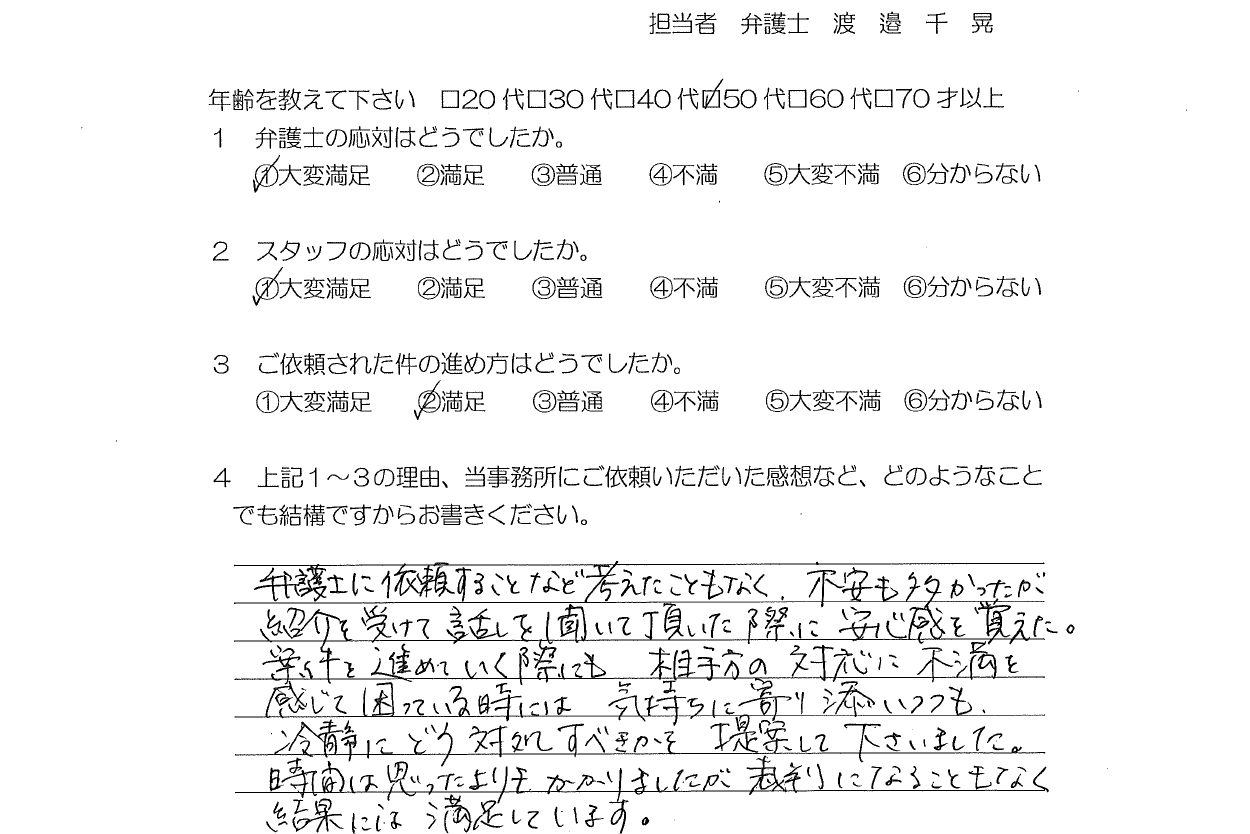 担当者 弁護士 渡 邉 千 晃
年齢を教えて下さい □20代□30代□40代☑50代□60代□70才以上
1 弁護士の応対はどうでしたか。
①大変満足 ②満足 ③普通 ④不満 ⑤大変不満 ⑥分からない
2 スタッフの応対はどうでしたか。
①大変満足 ②満足 ③普通 ④不満 ⑤大変不満 ⑥分からない
3 ご依頼された件の進め方はどうでしたか。
①大変満足 ②満足 ③普通 ④不満 ⑤大変不満 ⑥分からない
4 上記1~3の理由、当事務所にご依頼いただいた感想など、どのようなこと
でも結構ですからお書きください。
弁護士に依頼することなど考えたこともなく、不安も多かったが
紹介を受けて話しを聞いて頂いた際に安心感を覚えた。
案件を進めていく際にも 相手方の対応に不満を
感じて困っている時には 気持ちに寄り添いつつも、
冷静にどう対処すべきかを 提案して下さいました。
時間は思ったよりもかかりましたが裁判になることもなく
結果には満足しています。